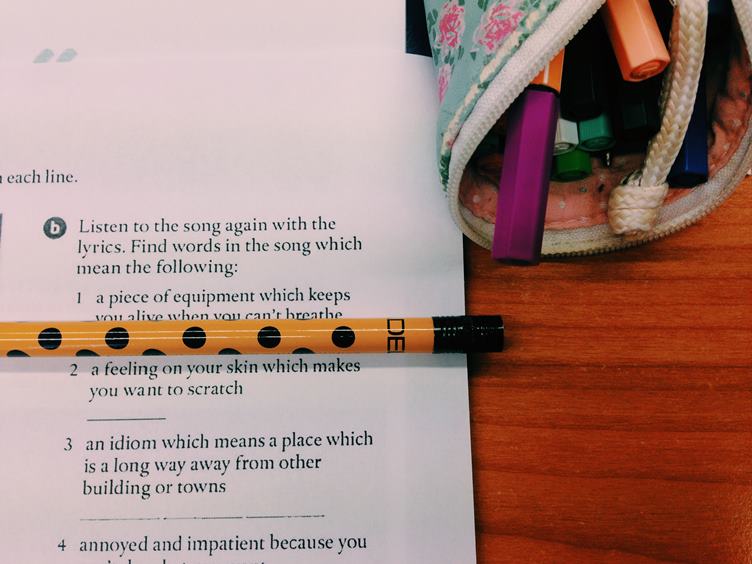 each line.
b Listen to the song again with the
lyrics. Find words in the song which
mean the following:
1 a piece of equipment which keeps
you alive when you can't breathe
DE
2 a feeling on your skin which makes
you want to scratch
3 an idiom which means a place which
is a long way away from other
building or towns
4 annoyed and impatient because you